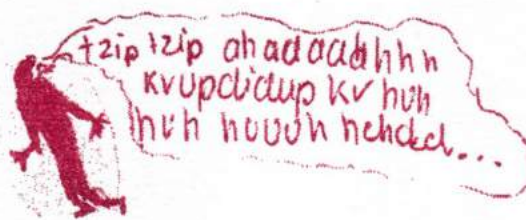 tzip tzip ahadaadhhh
kvupdidup kv huh
huh houuh hehded...